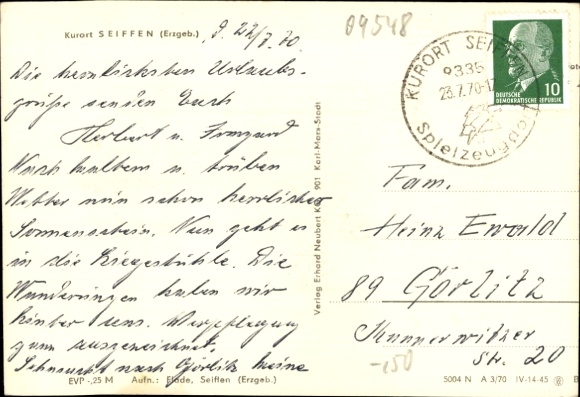 Kurort SEIFFEN (Erzgeb.)
d. 22/7. 70
Die herzlichsten Urlaubs-
grüße senden Euch
Herbert u. Irmgard
Nach kaltem u. trüben
Wetter nun schon herrlicher
Sonnenschein. Nun geht es
in die Liegestühle. Die
Wanderungen haben wir
hinter uns. Verpflegung
ganz ausgezeichnet.
Sehnsucht nach Görlitz keine
EVP -,25 M Aufn.: Flade, Seiffen (Erzgeb.)
Verlag Erhard Neubert KG, 901 Karl-Marx-Stadt
09548
KURORT SEIFFEN
9335
23.7.70-17
Spielzeug
10
DEUTSCHE
DEMOKRATISCHE REPUBLIK
Fam.
Heinz Ewald
89 Görlitz
Kunnerwitzer
Str. 20
-,50
5004 N A 3/70 IV-14-45